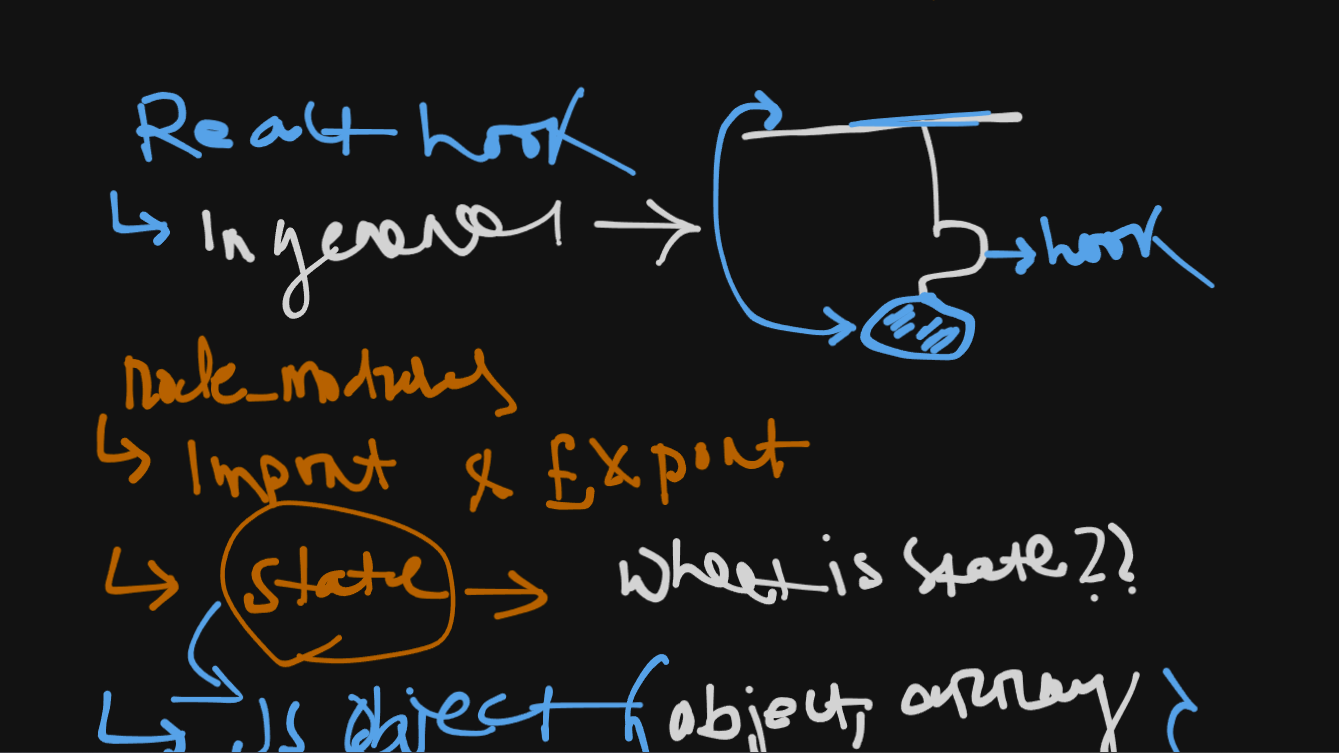 React hook
In general
hook
node_modules
Import & Export
state
What is state??
Js object (object, array)